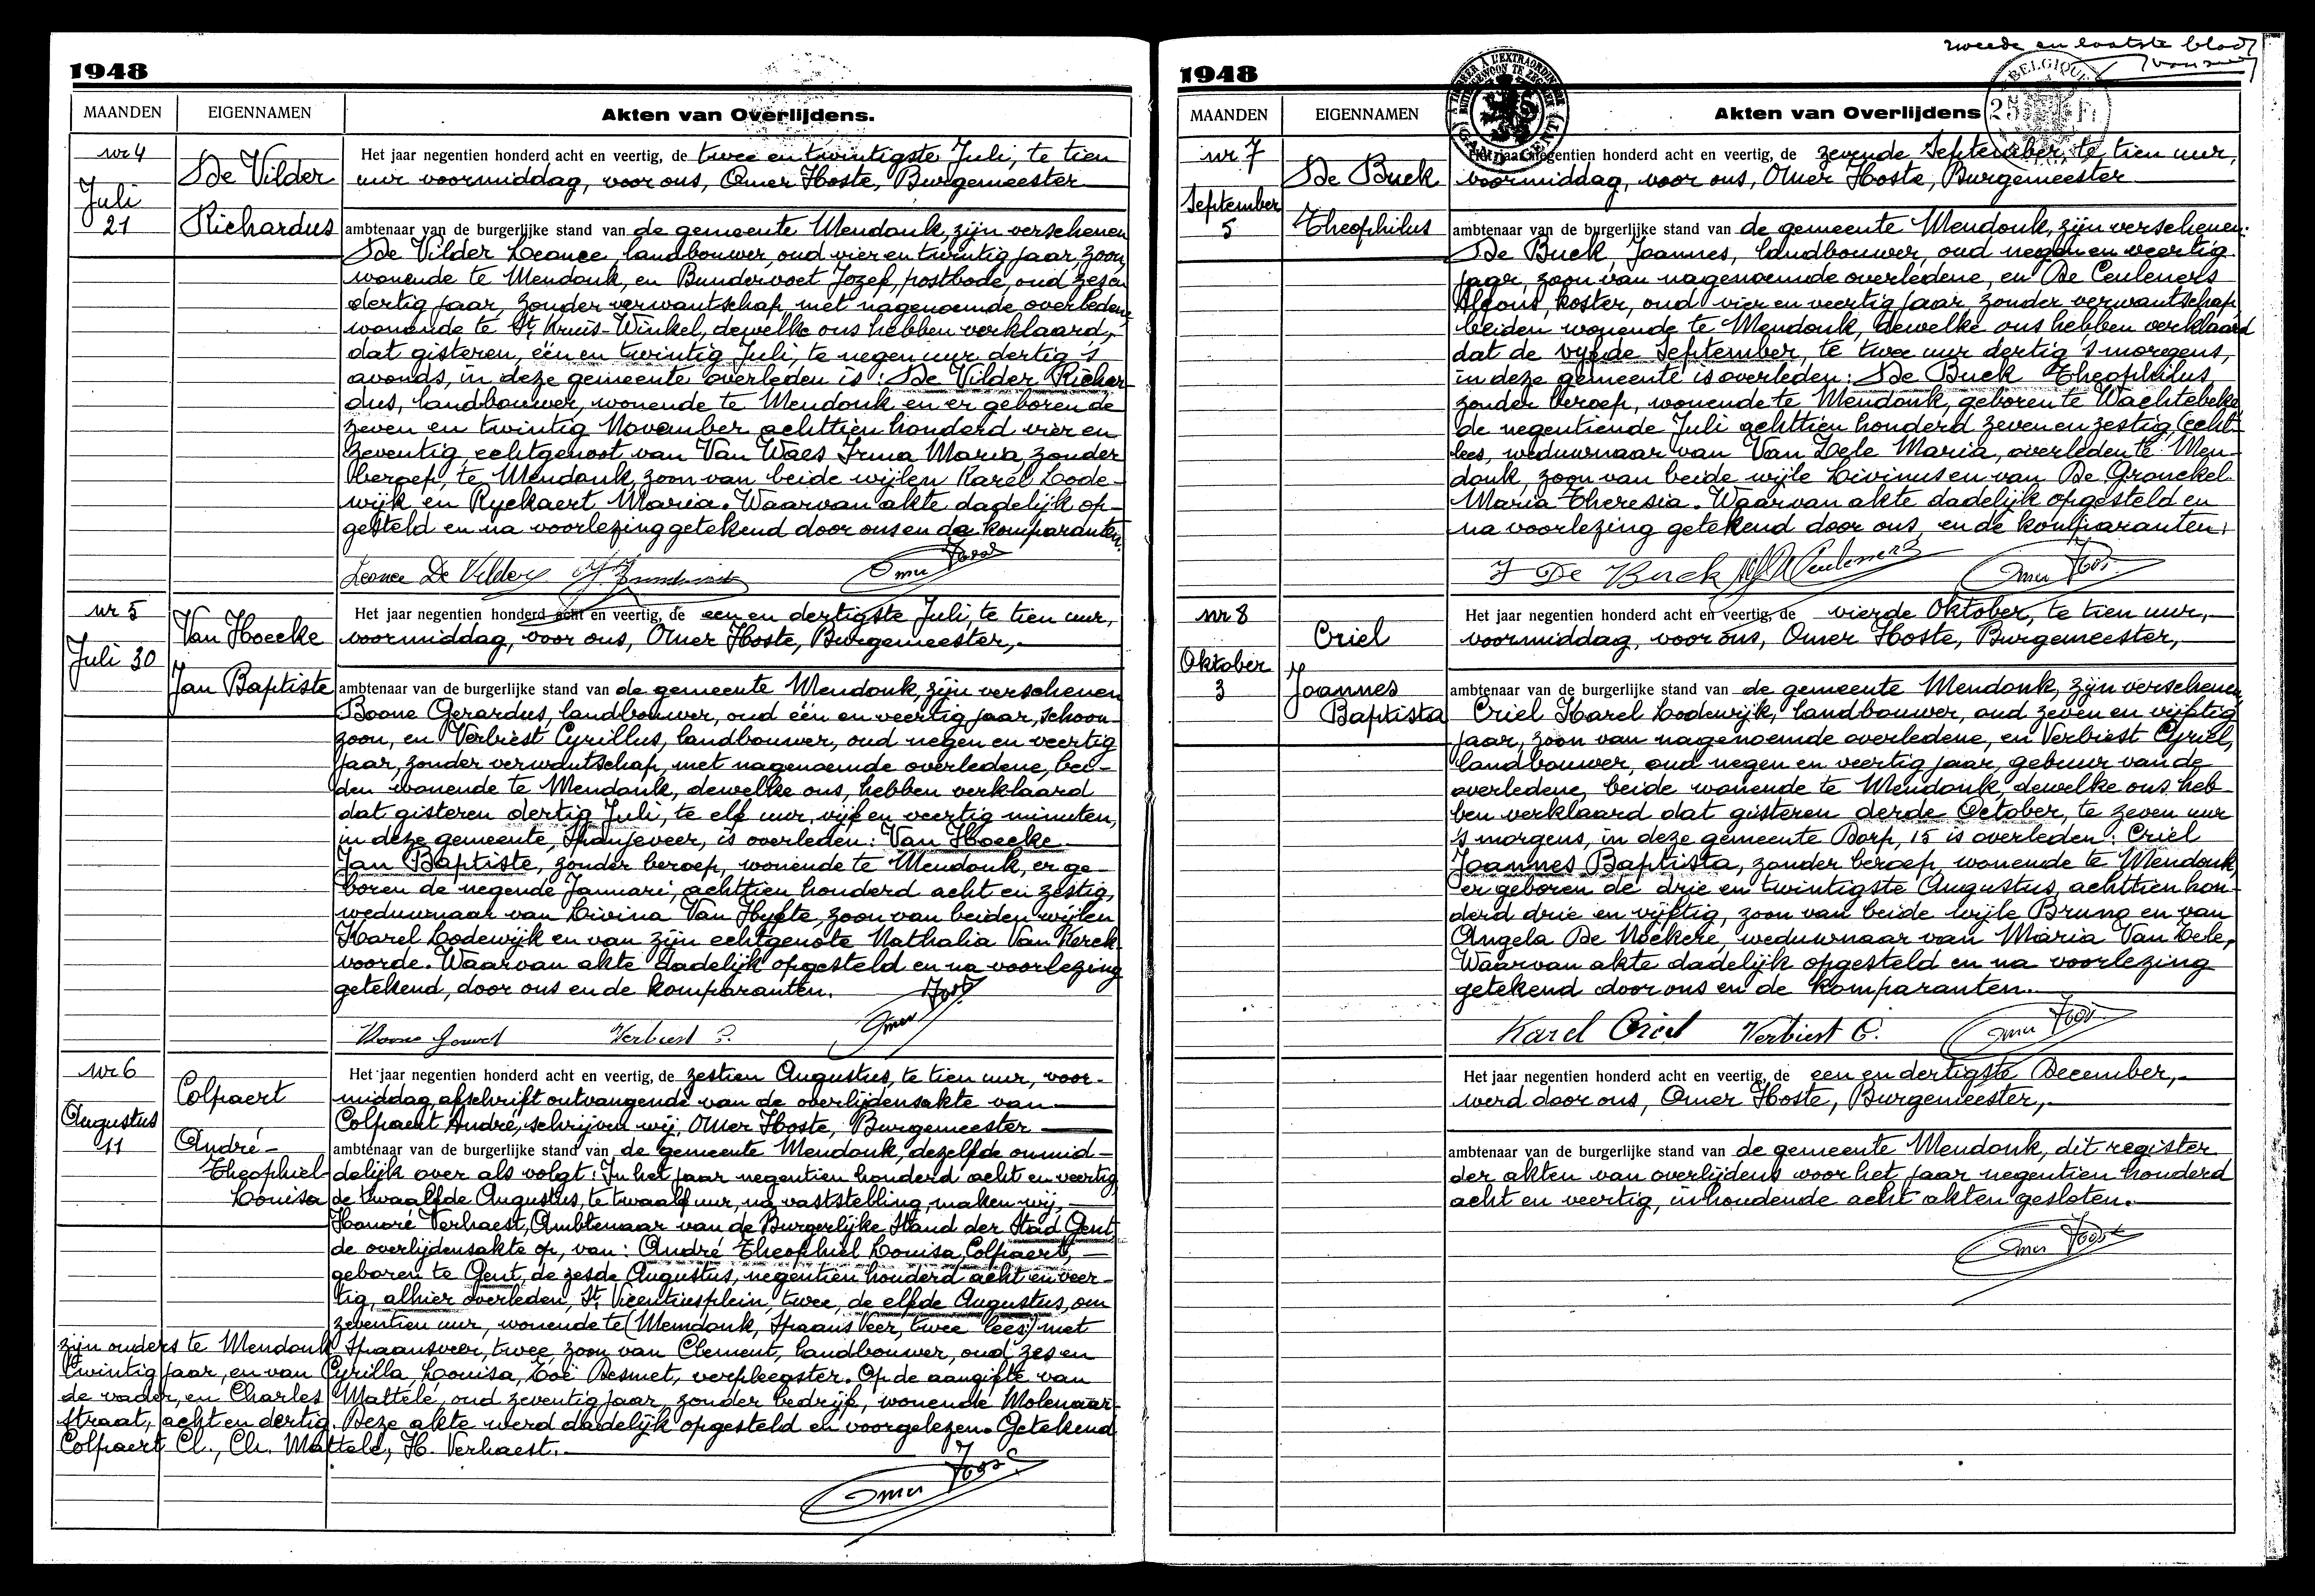 1948
MAANDEN
EIGENNAMEN
Akten van Overlijdens.
nr 4
Juli
21
De Vilder
Richardus
Het jaar negentien honderd acht en veertig, de twee en twintigste Juli, te tien
uur voormiddag, voor ons, Omer Hoste, Burgemeester
ambtenaar van de burgerlijke stand van de gemeente Mendonk, zijn verschenen
De Vilder Leonce, landbouwer, oud vier en twintig jaar, zoon,
wonende te Mendonk, en Bundervoet Jozef, postbode, oud zes en
dertig jaar, zonder verwantschap, met nagenoemde overledene,
wonende te St Kruis-Winkel, dewelke ons hebben verklaard,
dat gisteren, één en twintig Juli, te negen uur dertig 's
avonds, in deze gemeente overleden is: De Vilder Richar-
dus, landbouwer, wonende te Mendonk en er geboren de
zeven en twintig November achttien honderd vier en
zeventig, echtgenoot van Van Waes Irma Maria, zonder
beroep, te Mendonk, zoon van beide wijlen Karel Lode-
wijk en Ryckaert Maria. Waarvan akte dadelijk op-
gesteld en na voorlezing getekend door ons en de komparanten.
Leonce De Vilder Omer Hoste
nr 5
Juli 30
Van Hoecke
Jan Baptiste
Het jaar negentien honderd acht en veertig, de een en dertigste Juli, te tien uur,
voormiddag, voor ons, Omer Hoste, Burgemeester,
ambtenaar van de burgerlijke stand van de gemeente Mendonk, zijn verschenen
Boone Gerardus, landbouwer, oud één en veertig jaar, schoon-
zoon, en Verbiest Cyrillus, landbouwer, oud negen en veertig
jaar, zonder verwantschap, met nagenoemde overledene, bei-
den wonende te Mendonk, dewelke ons, hebben verklaard
dat gisteren dertig Juli, te elf uur, vijf en veertig minuten,
in deze gemeente, Spanjeveer, is overleden: Van Hoecke
Jan Baptiste, zonder beroep, wonende te Mendonk, er ge-
boren de negende Januari, achttien honderd acht en zestig,
weduwnaar van Livina Van Hyfte, zoon van beiden wijlen
Karel Lodewijk en van zijn echtgenote Nathalia Van Kerck-
voorde. Waarvan akte dadelijk opgesteld en na voorlezing
getekend, door ons en de komparanten.
Verbiest C. Omer Hoste
nr 6
Augustus
11
Colpaert
André-
Theophiel-
Louisa
Het jaar negentien honderd acht en veertig, de zestien Augustus, te tien uur, voor-
middag, afschrift ontvangende van de overlijdensakte van
Colpaert André, schrijven wij, Omer Hoste, Burgemeester
ambtenaar van de burgerlijke stand van de gemeente Mendonk, dezelfde onmid-
delijk over als volgt: In het jaar negentien honderd acht en veertig
de twaalfde Augustus, te twaalf uur, na vaststelling, maken wij,
Honoré Verhaest, Ambtenaar van de Burgerlijke Stand der Stad Gent,
de overlijdensakte op, van: André Theophiel Louisa Colpaert,
geboren te Gent, de zesde Augustus, negentien honderd acht en veer-
tig, alhier overleden, St Vicentiusplein, twee, de elfde Augustus, om
zeventien uur, wonende te (Memdonk, Spaans Veer, twee lees:) met
zijn ouders te Mendonk Spaansveer, twee, zoon van Clement, landbouwer, oud zes en
twintig jaar, en van Cyrilla, Louisa, Zoë Desmet, verpleegster. Op de aangifte van
de vader, en Charles Mattelé, oud zeventig jaar, zonder bedrijf, wonende Molenaar-
straat, acht en dertig. Deze akte werd dadelijk opgesteld en voorgelezen. Getekend
Colpaert Cl., Ch. Mattelé, H. Verhaest.
Omer Hoste
zweede en laatste blad
1948
MAANDEN
EIGENNAMEN
Akten van Overlijdens
BELGIQUE
25 Fr
nr 7
September
5
De Buck
Theophilus
Het jaar negentien honderd acht en veertig, de zevende September, te tien uur,
voormiddag, voor ons, Omer Hoste, Burgemeester
ambtenaar van de burgerlijke stand van de gemeente Mendonk, zijn verschenen:
De Buck, Joannes, landbouwer, oud negen en veertig
jaar, zoon van nagenoemde overledene, en De Ceuleners
Alfons, koster, oud vier en veertig jaar, zonder verwantschap,
beiden wonende te Mendonk, dewelke ons hebben verklaard
dat de vijfde September, te twee uur dertig 's morgens,
in deze gemeente is overleden: De Buck Theophilus
zonder beroep, wonende te Mendonk, geboren te Wachtebeke
de negentiende Juli achttien honderd zeven en zestig, (echt
lees, weduwnaar van Van Zele Maria, overleden te Men-
donk, zoon van beide wijle Livinus en van De Gronckel
Maria Theresia. Waarvan akte dadelijk opgesteld en
na voorlezing getekend door ons, en de komparanten.
J De Buck Omer Hoste
nr 8
Oktober
3
Criel
Joannes
Baptista
Het jaar negentien honderd acht en veertig, de vierde Oktober, te tien uur,
voormiddag, voor ons, Omer Hoste, Burgemeester,
ambtenaar van de burgerlijke stand van de gemeente Mendonk, zijn verschenen,
Criel Karel Lodewijk, landbouwer, oud zeven en vijftig
jaar, zoon van nagenoemde overledene, en Verbiest Cyriel,
landbouwer, oud negen en veertig jaar, gebuur van de
overledene, beide wonende te Mendonk, dewelke ons heb-
ben verklaard dat gisteren derde October, te zeven uur
's morgens, in deze gemeente Dorp, 15 is overleden: Criel
Joannes Baptista, zonder beroep, wonende te Mendonk,
er geboren de drie en twintigste Augustus, achttien hon-
derd drie en vijftig, zoon van beide wijle Bruno en van
Angela De Nockere, weduwnaar van Maria Van Zele.
Waarvan akte dadelijk opgesteld en na voorlezing
getekend door ons en de komparanten.
Karel Criel Verbiest C. Omer Hoste
Het jaar negentien honderd acht en veertig, de een en dertigste December,
werd door ons, Omer Hoste, Burgemeester,
ambtenaar van de burgerlijke stand van de gemeente Mendonk, dit register
der akten van overlijdens voor het jaar negentien honderd
acht en veertig, inhoudende acht akten gesloten.
Omer Hoste